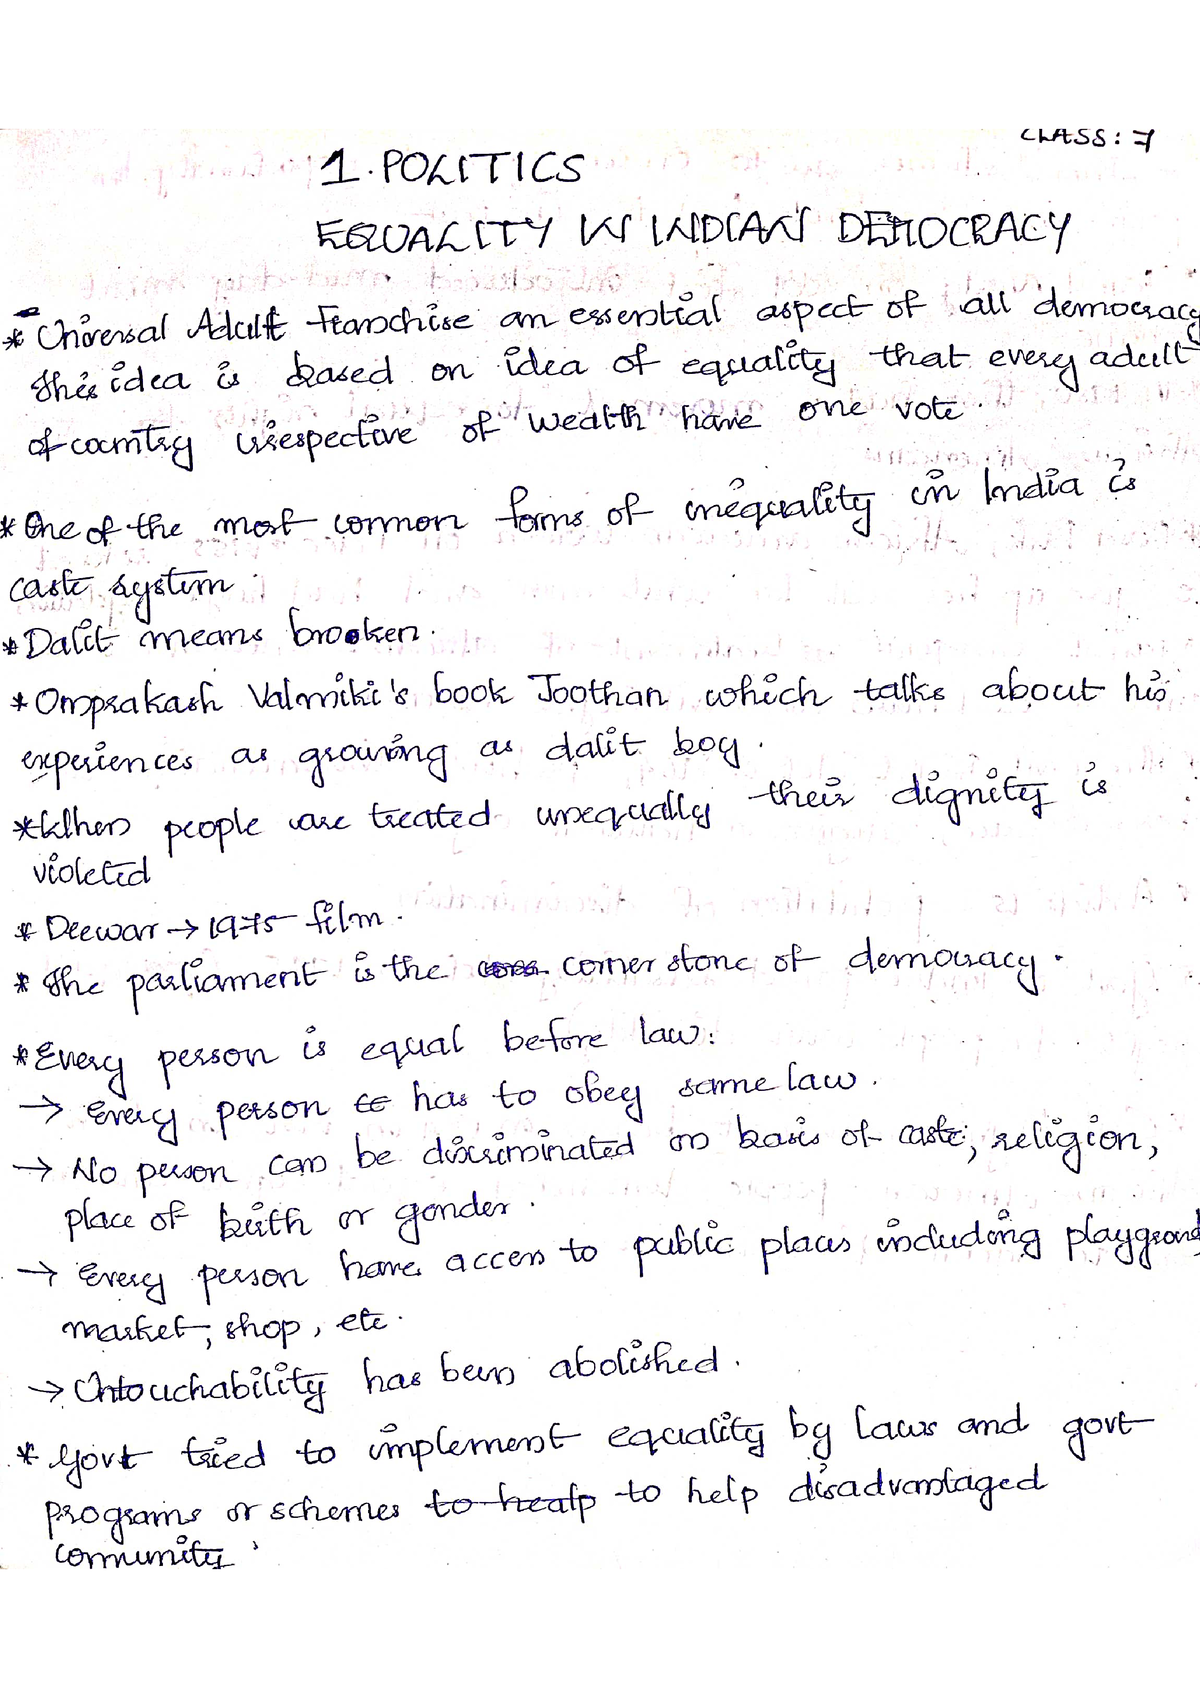 CLASS: 7
1. POLITICS
EQUALITY IN INDIAN DEMOCRACY
* Universal Adult Franchise an essential aspect of all democracy
this idea is based on idea of equality that every adult
of country irrespective of wealth have one vote.
* One of the most common forms of inequality in India is
caste system.
* Dalit means brooken.
* Omprakash Valmiki's book Joothan which talks about his
experiences as growing as dalit boy.
* When people are treated unequally their dignity is
violeted
* Deewar → 1975 film.
* The parliament is the corner stone of democracy.
* Every person is equal before law:
→ Every person has to obey same law.
→ No person can be discriminated on basis of caste, religion,
place of birth or gender.
→ Every person have access to public places including playground
market, shop, etc.
→ Untouchability has been abolished.
* Govt tried to implement equality by laws and govt
programs or schemes to healp to help disadvantaged
community.